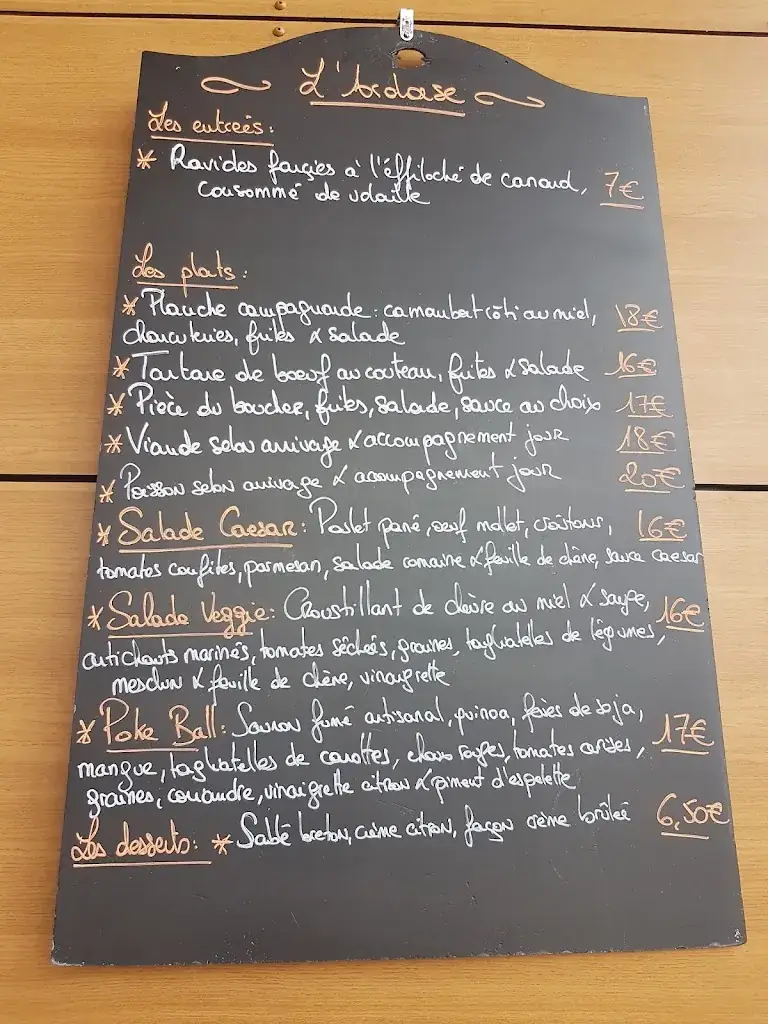 L'Ardoise
Les entrées:
* Ravioles farçies à l'éffiloché de canard, 7€
consommé de volaille
Les plats:
* Planche campagnarde: camembert rôti au miel, 18€
charcuteries, frites & salade
* Tartare de boeuf au couteau, frites & salade 16€
* Pièce du boucher, frites, salade, sauce au choix 17€
* Viande selon arrivage & accompagnement jour 18€
* Poisson selon arrivage & accompagnement jour 20€
* Salade Caesar: Poulet pané, oeuf mollet, croûtons, 16€
tomates confites, parmesan, salade romaine & feuille de chêne, sauce caesar
* Salade Veggie: Croustillant de chèvre au miel & sauge, 16€
artichauts marinés, tomates séchées, graines, tagliatelles de légumes,
mesclun & feuille de chêne, vinaigrette
* Poke Ball: Saumon fumé artisanal, quinoa, fèves de soja, 17€
mangue, tagliatelles de carottes, choux rouges, tomates cerises,
graines, coriandre, vinaigrette citron & piment d'espelette
Les desserts: * Sablé breton, crème citron, façon crème brûlée 6,50€